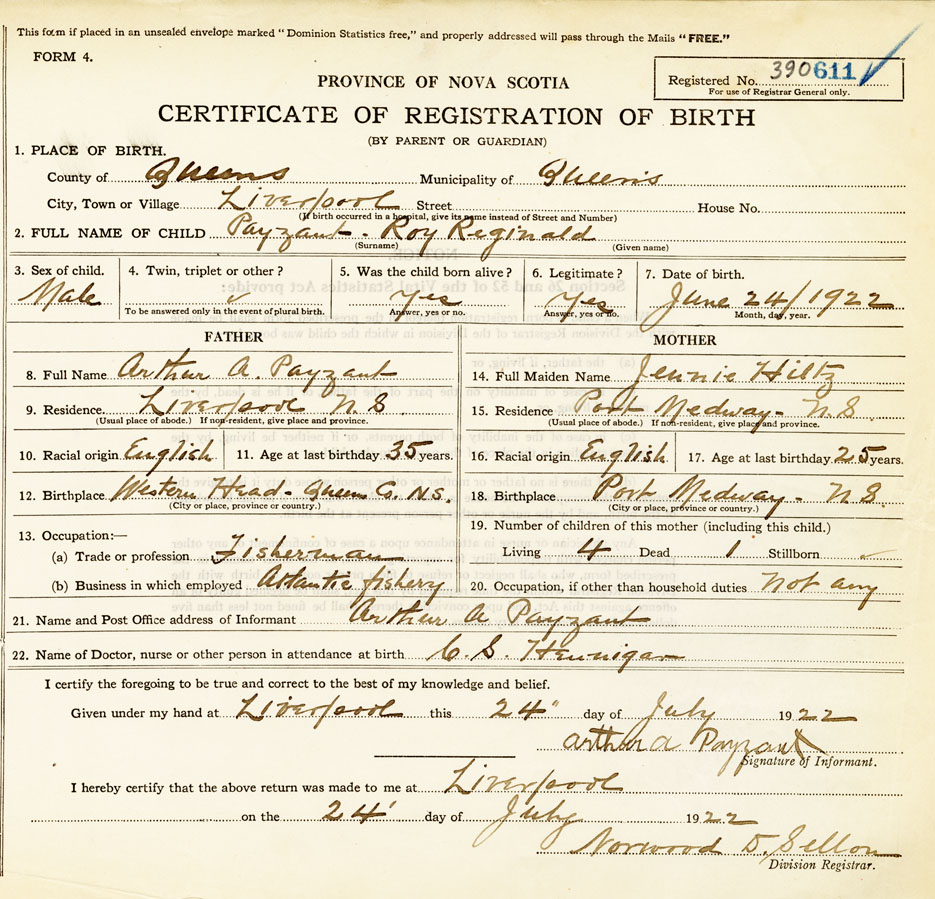 This form if placed in an unsealed envelope marked "Dominion Statistics free," and properly addressed will pass through the Mails "FREE."
FORM 4.
Registered No. 390611
For use of Registrar General only.
PROVINCE OF NOVA SCOTIA
CERTIFICATE OF REGISTRATION OF BIRTH
(BY PARENT OR GUARDIAN)
1. PLACE OF BIRTH.
County of Queens Municipality of Queens
City, Town or Village Liverpool Street House No.
(If birth occurred in a hospital, give its name instead of Street and Number)
2. FULL NAME OF CHILD Payzant - Roy Reginald
(Surname) (Given name)
3. Sex of child. 4. Twin, triplet or other? 5. Was the child born alive? 6. Legitimate? 7. Date of birth.
Male Yes Yes June 24/1922
To be answered only in the event of plural birth. Answer, yes or no. Answer, yes or no. Month, day, year.
FATHER MOTHER
8. Full Name Arthur A. Payzant 14. Full Maiden Name Jennie Hiltz
9. Residence. Liverpool N.S 15. Residence Port Medway - N.S
(Usual place of abode.) If non-resident, give place and province. (Usual place of abode.) If non-resident, give place and province.
10. Racial origin English 11. Age at last birthday 35 years. 16. Racial origin English 17. Age at last birthday 25 years.
12. Birthplace Western Head - Queens Co. N.S. 18. Birthplace Port Medway - N.S
(City or place, province or country.) (City or place, province or country.)
13. Occupation:— 19. Number of children of this mother (including this child.)
(a) Trade or profession Fisherman Living 4 Dead 1 Stillborn
(b) Business in which employed Atlantic fishery 20. Occupation, if other than household duties Not any
21. Name and Post Office address of Informant Arthur A Payzant
22. Name of Doctor, nurse or other person in attendance at birth C. S. Hennigar
I certify the foregoing to be true and correct to the best of my knowledge and belief.
Given under my hand at Liverpool this 24" day of July 1922
Arthur A Payzant
Signature of Informant.
I hereby certify that the above return was made to me at Liverpool
on the 24' day of July 1922
Norwood D. Sellon
Division Registrar.